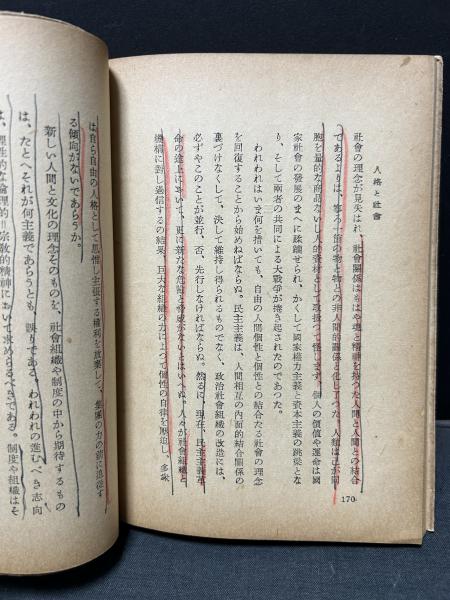 人格と社會
社會の理念が見失はれ、社會關係はもはや魂と精神を持つた人間と人間との結合
であるよりは、寧ろ一箇の物と物との非人間的關係と化し了つた。人類は己が同
胞を量的な商品ないし人的資材として取扱つて怪します、個人の價値や運命は國
家社會の發展のまへに蹂躙せられ、かくして國家權力主義と資本主義の跳梁とな
り、そして兩者の共同による大戰爭が捲き起されたのであつた。
われわれはいま何を措いても、自由の人間個性と個性との結合たる社會の理念
を回復することから始めねばならぬ。民主主義は、人間相互の內面的結合關係の
裏づけなくして、決して維持し得られるものでなく、政治社會組織の改造には、
必ずやこのことが並行、否、先行しなければならぬ。然るに、現在、民主主義革
命の途上において、更に新たな危險と脅威がないとはいへぬ。人々が社會組織と
機構に對し過信するの結果、巨大な組織の力によつて個性の自律を壓迫し、多數
170
は自ら自由の人格として思惟し主張する權利を放棄して、集團の力の前に
る傾向がないであらうか。
新しい人間と文化の理念そのものを、社會組織や制度の中から期待するもの
は、たとへそれが何主義であらうとも、誤りである。われわれの進むべき志向
は、理性的な倫理的＝宗教的精神において求めらるべきである。制度や組織はそ